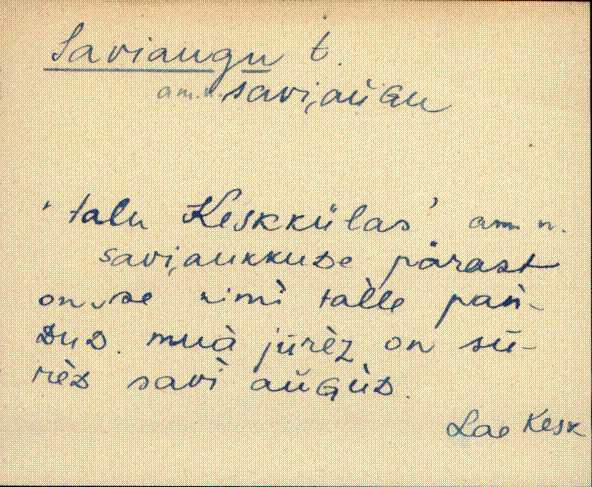 Saviaugu t.
am.n. savi,aùGu
'talu Keskkülas' am. n.
savi,aukkuDe pärast
on se nimi talle pań-
DuD. muà jürèz on sū-
rèD savì aùGùD.
Lae Kesk